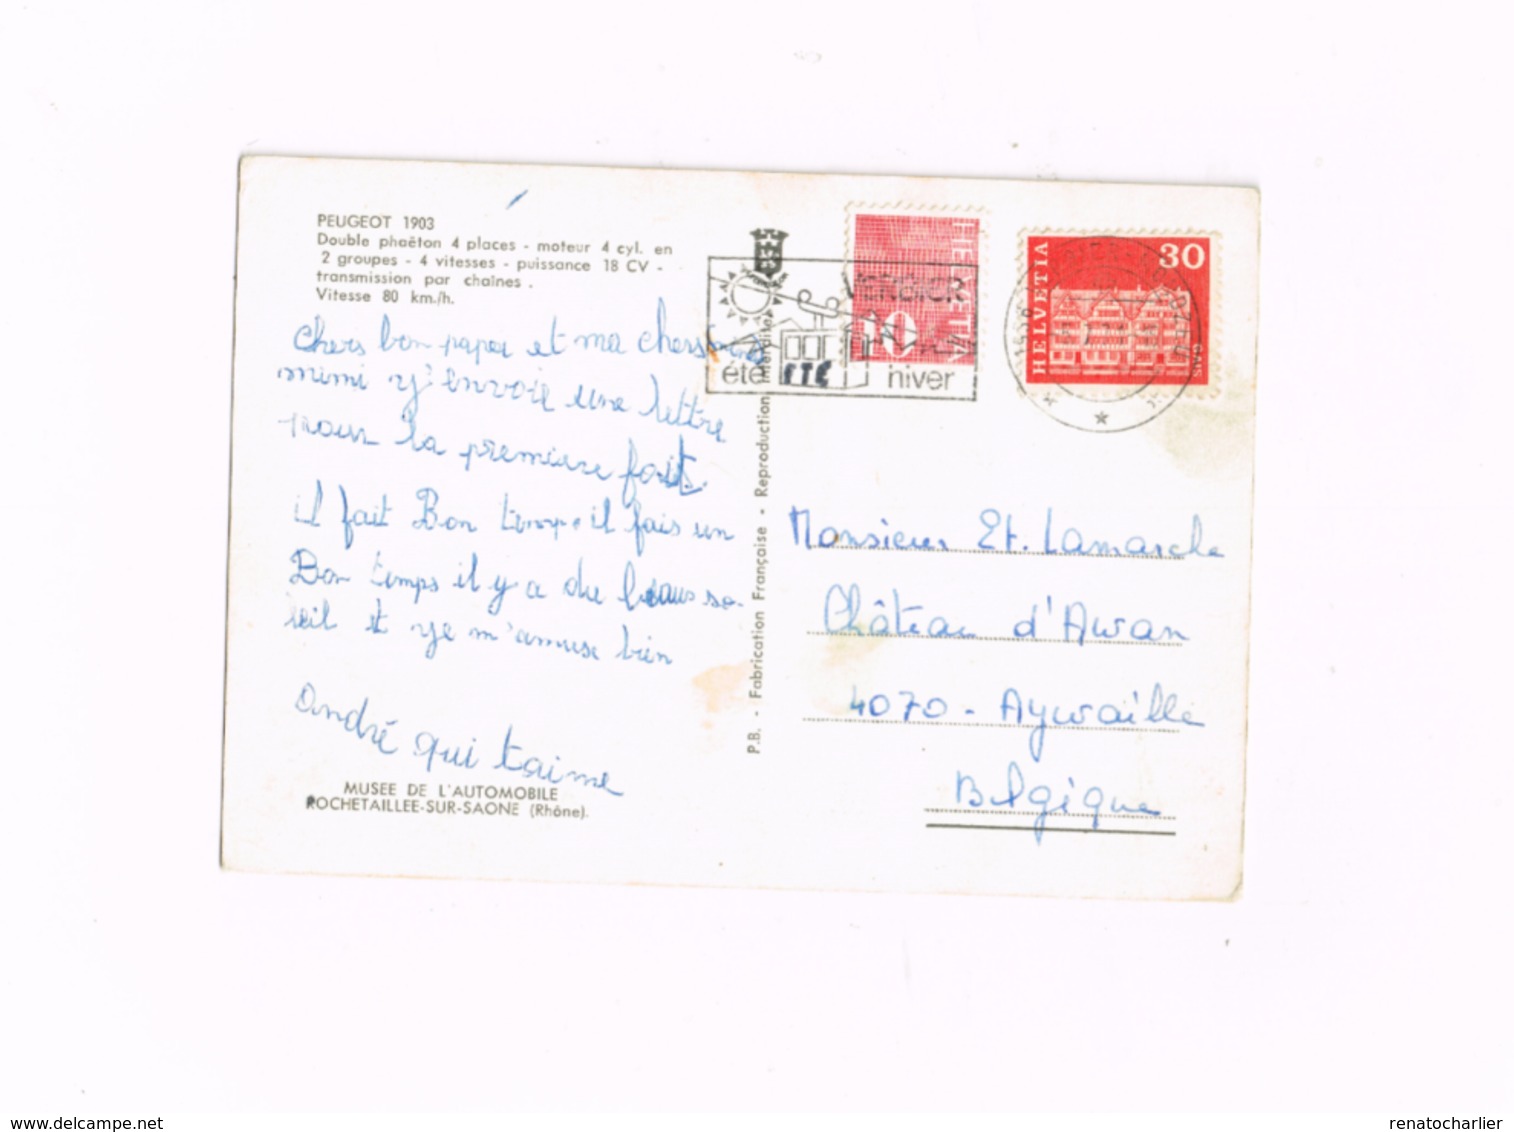 PEUGEOT 1903
Double phaëton 4 places - moteur 4 cyl. en
2 groupes - 4 vitesses - puissance 18 CV -
transmission par chaînes .
Vitesse 80 km./h.
chers bon papa et ma chers
mimi y'envoie une lettre
pour la premiere fois.
il fait Bon temps. il fais un
Bon temps il y a du beaus so-
leil et ye m'amuse bien
André qui t'aime
MUSEE DE L'AUTOMOBILE
ROCHETAILLEE-SUR-SAONE (Rhône).
P.B. - Fabrication Française - Reproduction Interdite
VERBIER
été ETE hiver
HELVETIA
10
HELVETIA
30
Monsieur Et. Lamarche
Château d'Awan
4070 - Aywaille
Belgique
delcampe.net
renatocharlier